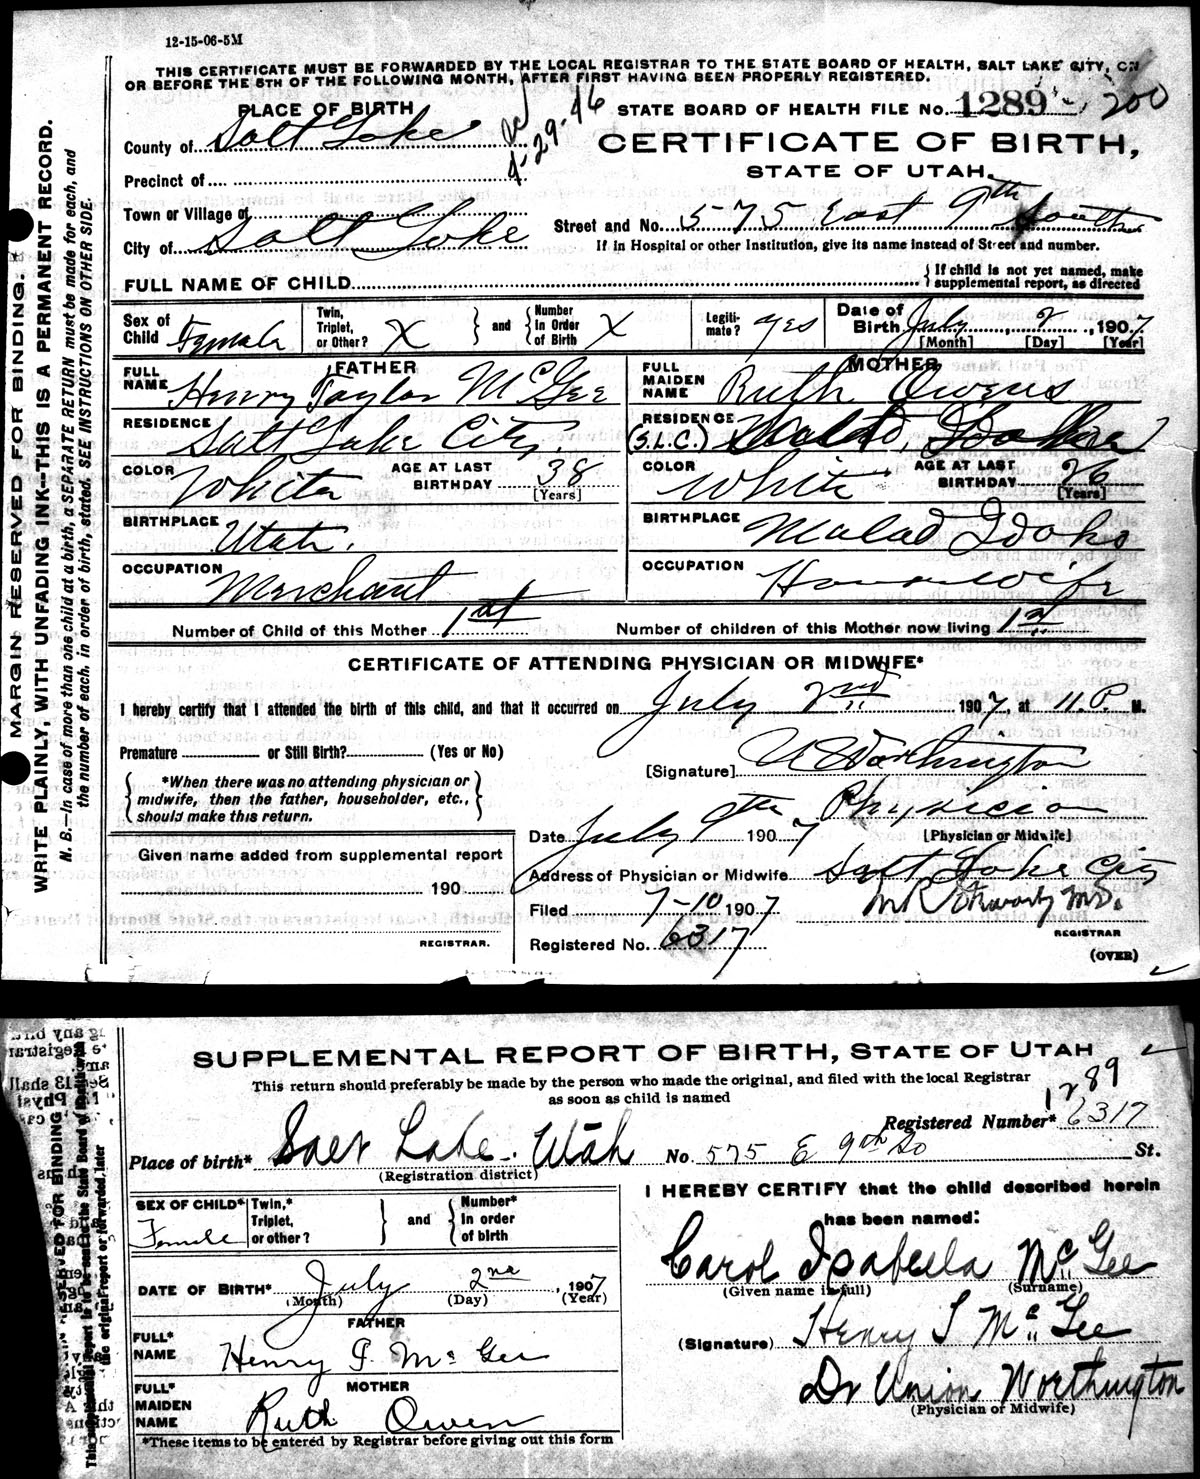 12-15-06-5M
THIS CERTIFICATE MUST BE FORWARDED BY THE LOCAL REGISTRAR TO THE STATE BOARD OF HEALTH, SALT LAKE CITY, ON
OR BEFORE THE 5TH OF THE FOLLOWING MONTH, AFTER FIRST HAVING BEEN PROPERLY REGISTERED.
PLACE OF BIRTH
4-29-46
STATE BOARD OF HEALTH FILE No. 1289 200
County of Salt Lake
CERTIFICATE OF BIRTH,
STATE OF UTAH.
Precinct of
Town or Village of
Street and No. 575 East 9th South
City of Salt Lake
If in Hospital or other Institution, give its name instead of Street and number.
FULL NAME OF CHILD
{ If child is not yet named, make
supplemental report, as directed
Sex of Child Female
Twin, Triplet, or Other? X } and { Number in Order of Birth X
Legiti-mate? yes
Date of Birth July 2, 1907
[Month] [Day] [Year]
FATHER
FULL NAME Henry Taylor McGee
RESIDENCE Salt Lake City.
COLOR White AGE AT LAST BIRTHDAY 38 [Years]
BIRTHPLACE Utah.
OCCUPATION Merchant
MOTHER
FULL MAIDEN NAME Ruth Owens
RESIDENCE (S.L.C.) Idaho
COLOR White AGE AT LAST BIRTHDAY 26 [Years]
BIRTHPLACE Malad Idaho
OCCUPATION Housewife
Number of Child of this Mother 1st Number of children of this Mother now living 1st
CERTIFICATE OF ATTENDING PHYSICIAN OR MIDWIFE*
I hereby certify that I attended the birth of this child, and that it occurred on July 2nd 1907, at 11.P. M.
Premature or Still Birth? (Yes or No)
[Signature] U Worthington
{ *When there was no attending physician or
midwife, then the father, householder, etc.,
should make this return. }
Physician
Date July 9th 1907 [Physician or Midwife]
Given name added from supplemental report
Address of Physician or Midwife Salt Lake City
190
Filed 7-10 1907 M.D.
REGISTRAR.
REGISTRAR
Registered No. 6317
(OVER)
MARGIN RESERVED FOR BINDING.
WRITE PLAINLY, WITH UNFADING INK—THIS IS A PERMANENT RECORD.
N. B.—In case of more than one child at a birth, a SEPARATE RETURN must be made for each, and
the number of each, in order of birth, stated. SEE INSTRUCTIONS ON OTHER SIDE.
SUPPLEMENTAL REPORT OF BIRTH, STATE OF UTAH
This return should preferably be made by the person who made the original, and filed with the local Registrar
as soon as child is named
1289
Registered Number* 6317
Place of birth* Salt Lake. Utah No. 575 E 9th So St.
(Registration district)
SEX OF CHILD* Female
Twin,* Triplet, or other? } and { Number* in order of birth
I HEREBY CERTIFY that the child described herein
has been named:
Carol Isabella McGee
(Given name in full) (Surname)
DATE OF BIRTH* July 2nd, 1907
(Month) (Day) (Year)
FATHER
FULL* NAME Henry T. McGee
(Signature) Henry T McGee
MOTHER
FULL* MAIDEN NAME Ruth Owen
Dr Union Worthington
(Physician or Midwife)
*These items to be entered by Registrar before giving out this form